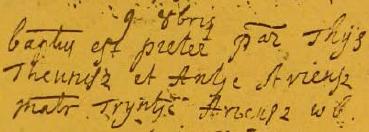 9 8bris
baptus est pieter par Thijs
Theunisz et Antje Ariensz
matr Tryntje Ariensz wb.